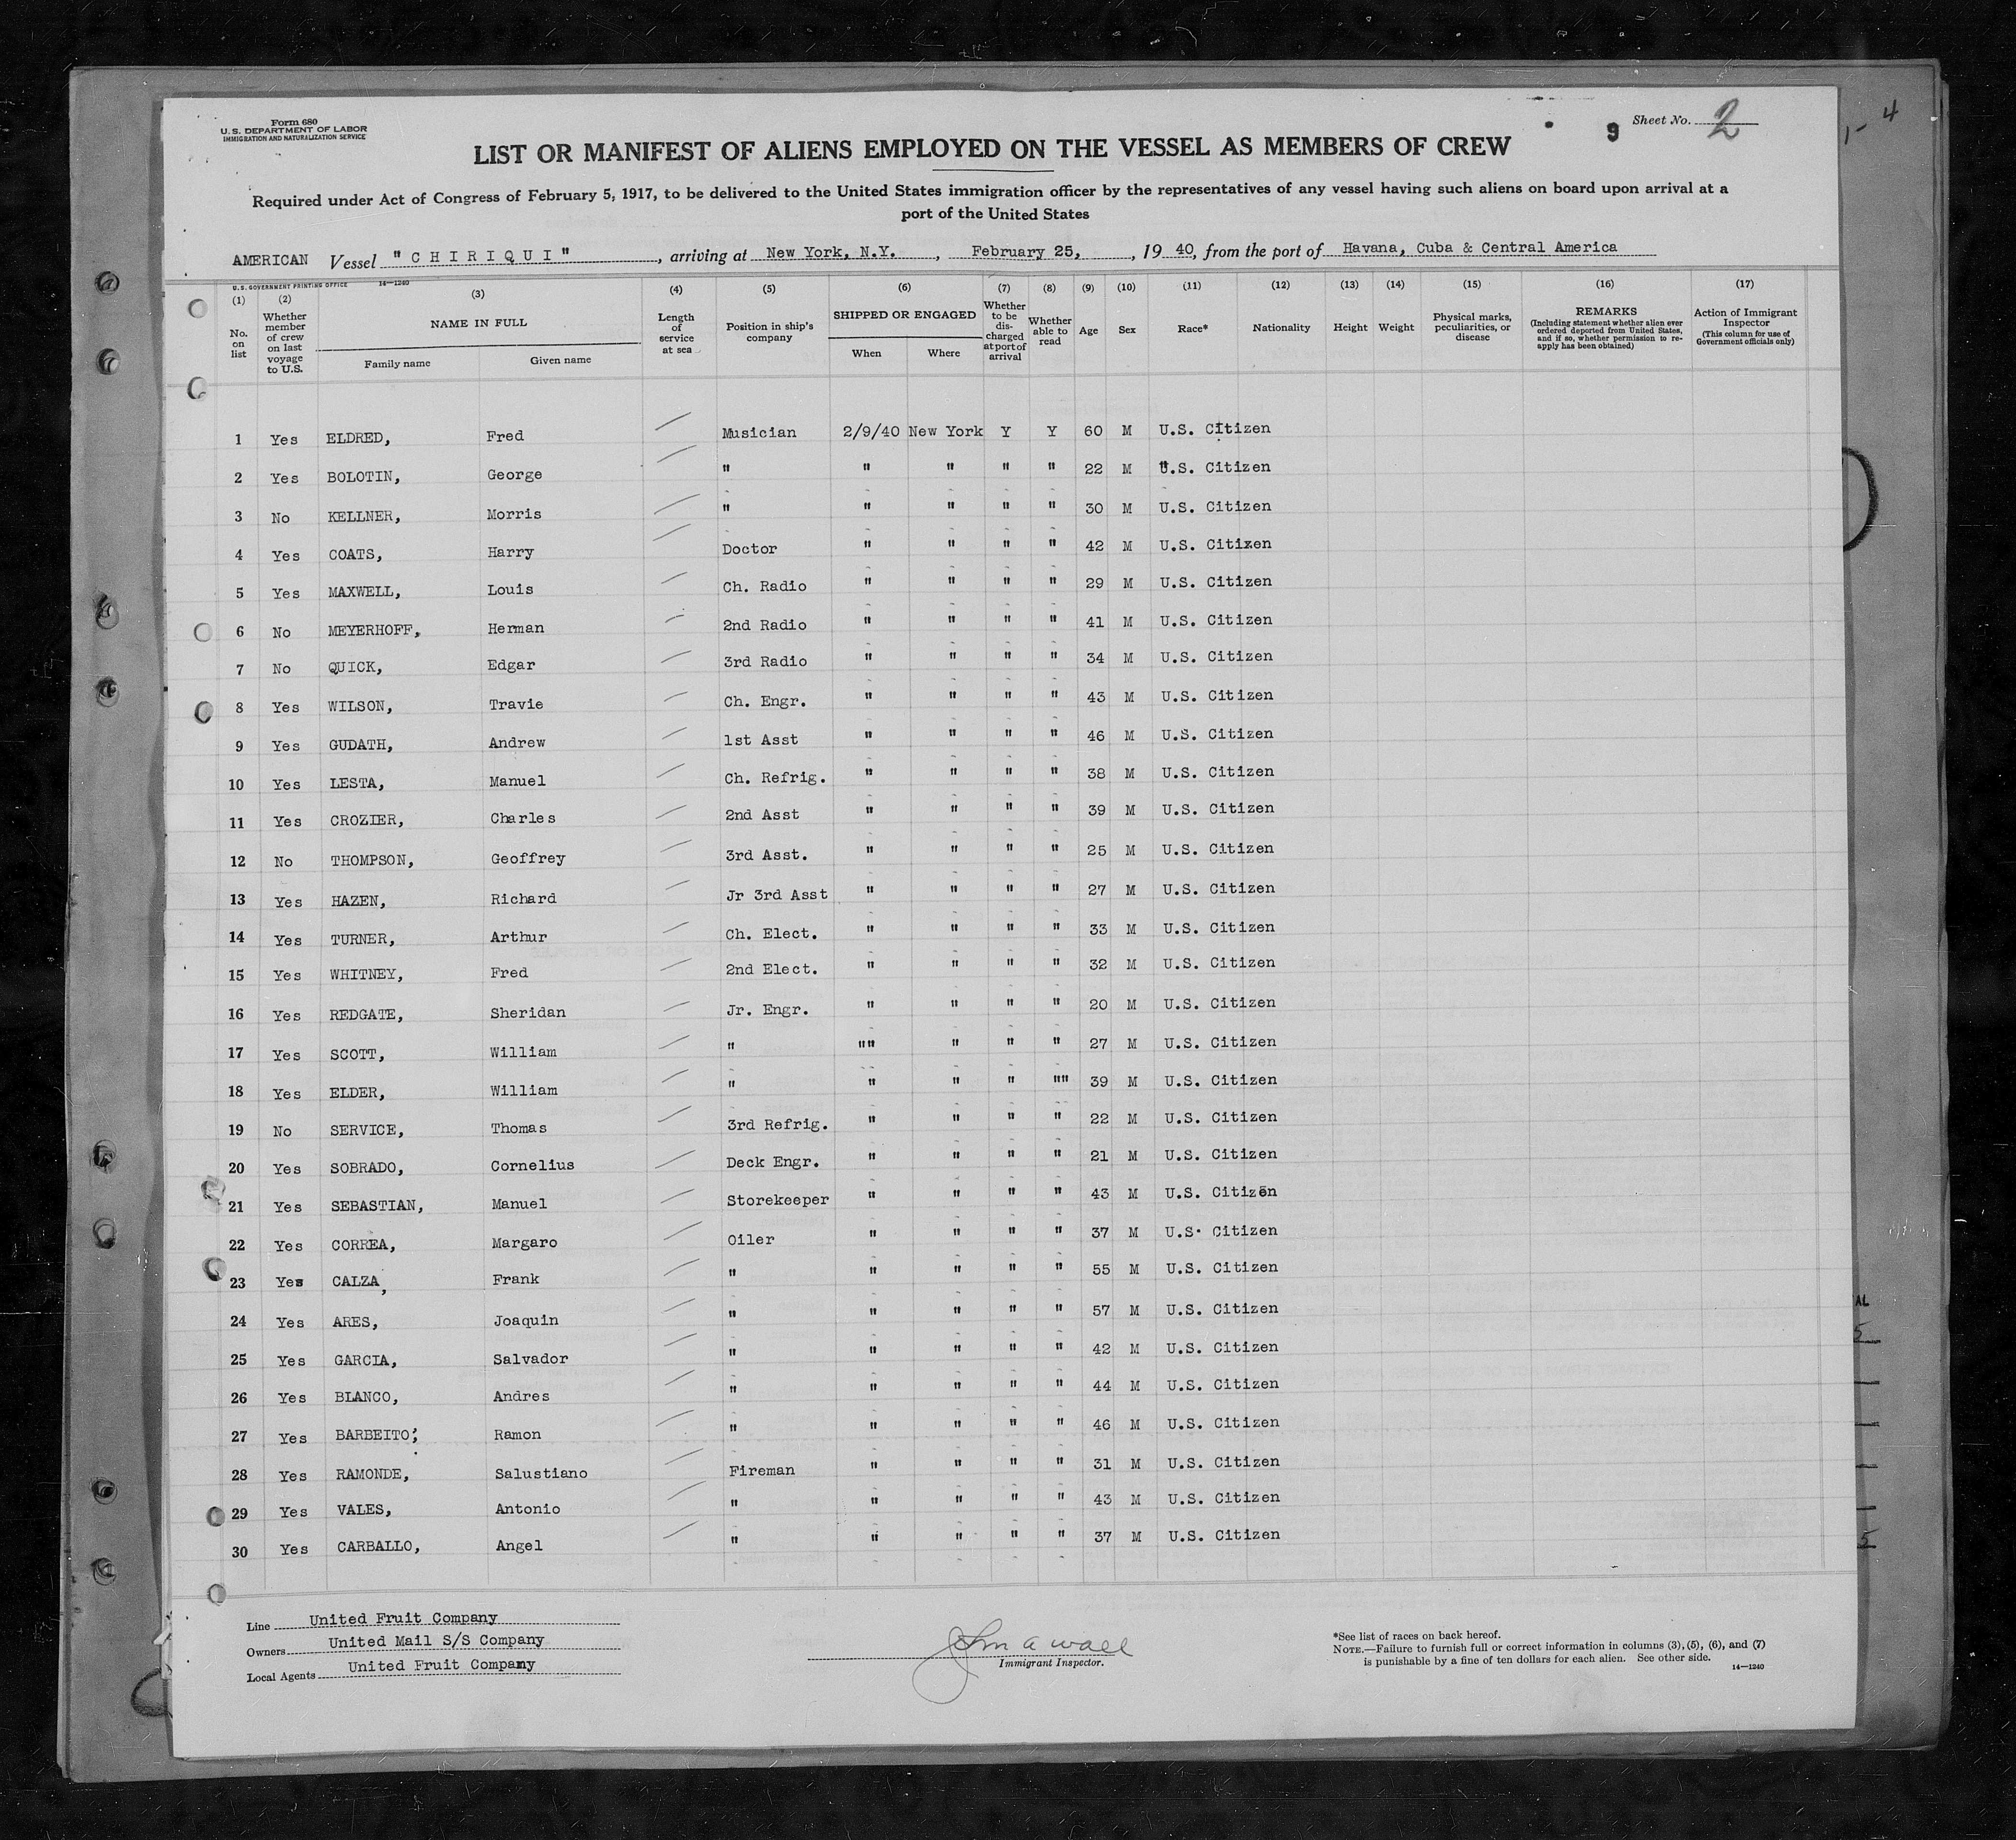 Form 680
U. S. DEPARTMENT OF LABOR
IMMIGRATION AND NATURALIZATION SERVICE
9 Sheet No. 2
1- 4
LIST OR MANIFEST OF ALIENS EMPLOYED ON THE VESSEL AS MEMBERS OF CREW
Required under Act of Congress of February 5, 1917, to be delivered to the United States immigration officer by the representatives of any vessel having such aliens on board upon arrival at a
port of the United States
AMERICAN Vessel "CHIRIQUI", arriving at New York, N.Y., February 25, 1940, from the port of Havana, Cuba & Central America
U. S. GOVERNMENT PRINTING OFFICE 14—1240
(1) (2) (3) (4) (5) (6) (7) (8) (9) (10) (11) (12) (13) (14) (15) (16) (17)
No. on list | Whether member of crew on last voyage to U.S. | NAME IN FULL Family name Given name | Length of service at sea | Position in ship's company | SHIPPED OR ENGAGED When Where | Whether to be discharged at port of arrival | Whether able to read | Age | Sex | Race* | Nationality | Height | Weight | Physical marks, peculiarities, or disease | REMARKS (Including statement whether alien ever ordered deported from United States, and if so, whether permission to reapply has been obtained) | Action of Immigrant Inspector (This column for use of Government officials only)
1 Yes ELDRED, Fred Musician 2/9/40 New York Y Y 60 M U.S. Citizen
2 Yes BOLOTIN, George " " " " " 22 M U.S. Citizen
3 No KELLNER, Morris " " " " " 30 M U.S. Citizen
4 Yes COATS, Harry Doctor " " " " 42 M U.S. Citizen
5 Yes MAXWELL, Louis Ch. Radio " " " " 29 M U.S. Citizen
6 No MEYERHOFF, Herman 2nd Radio " " " " 41 M U.S. Citizen
7 No QUICK, Edgar 3rd Radio " " " " 34 M U.S. Citizen
8 Yes WILSON, Travie Ch. Engr. " " " " 43 M U.S. Citizen
9 Yes GUDATH, Andrew 1st Asst " " " " 46 M U.S. Citizen
10 Yes LESTA, Manuel Ch. Refrig. " " " " 38 M U.S. Citizen
11 Yes CROZIER, Charles 2nd Asst " " " " 39 M U.S. Citizen
12 No THOMPSON, Geoffrey 3rd Asst. " " " " 25 M U.S. Citizen
13 Yes HAZEN, Richard Jr 3rd Asst " " " " 27 M U.S. Citizen
14 Yes TURNER, Arthur Ch. Elect. " " " " 33 M U.S. Citizen
15 Yes WHITNEY, Fred 2nd Elect. " " " " 32 M U.S. Citizen
16 Yes REDGATE, Sheridan Jr. Engr. " " " " 20 M U.S. Citizen
17 Yes SCOTT, William " "" " " " 27 M U.S. Citizen
18 Yes ELDER, William " " " " "" 39 M U.S. Citizen
19 No SERVICE, Thomas 3rd Refrig. " " " " 22 M U.S. Citizen
20 Yes SOBRADO, Cornelius Deck Engr. " " " " 21 M U.S. Citizen
21 Yes SEBASTIAN, Manuel Storekeeper " " " " 43 M U.S. Citizen
22 Yes CORREA, Margaro Oiler " " " " 37 M U.S. Citizen
23 Yes CALZA, Frank " " " " " 55 M U.S. Citizen
24 Yes ARES, Joaquin " " " " " 57 M U.S. Citizen
25 Yes GARCIA, Salvador " " " " " 42 M U.S. Citizen
26 Yes BLANCO, Andres " " " " " 44 M U.S. Citizen
27 Yes BARBEITO; Ramon " " " " " 46 M U.S. Citizen
28 Yes RAMONDE, Salustiano Fireman " " " " 31 M U.S. Citizen
29 Yes VALES, Antonio " " " " " 43 M U.S. Citizen
30 Yes CARBALLO, Angel " " " " " 37 M U.S. Citizen
Line United Fruit Company
Owners United Mail S/S Company
Local Agents United Fruit Company
John A Wall
Immigrant Inspector.
*See list of races on back hereof.
NOTE.—Failure to furnish full or correct information in columns (3), (5), (6), and (7)
is punishable by a fine of ten dollars for each alien. See other side.
14—1240